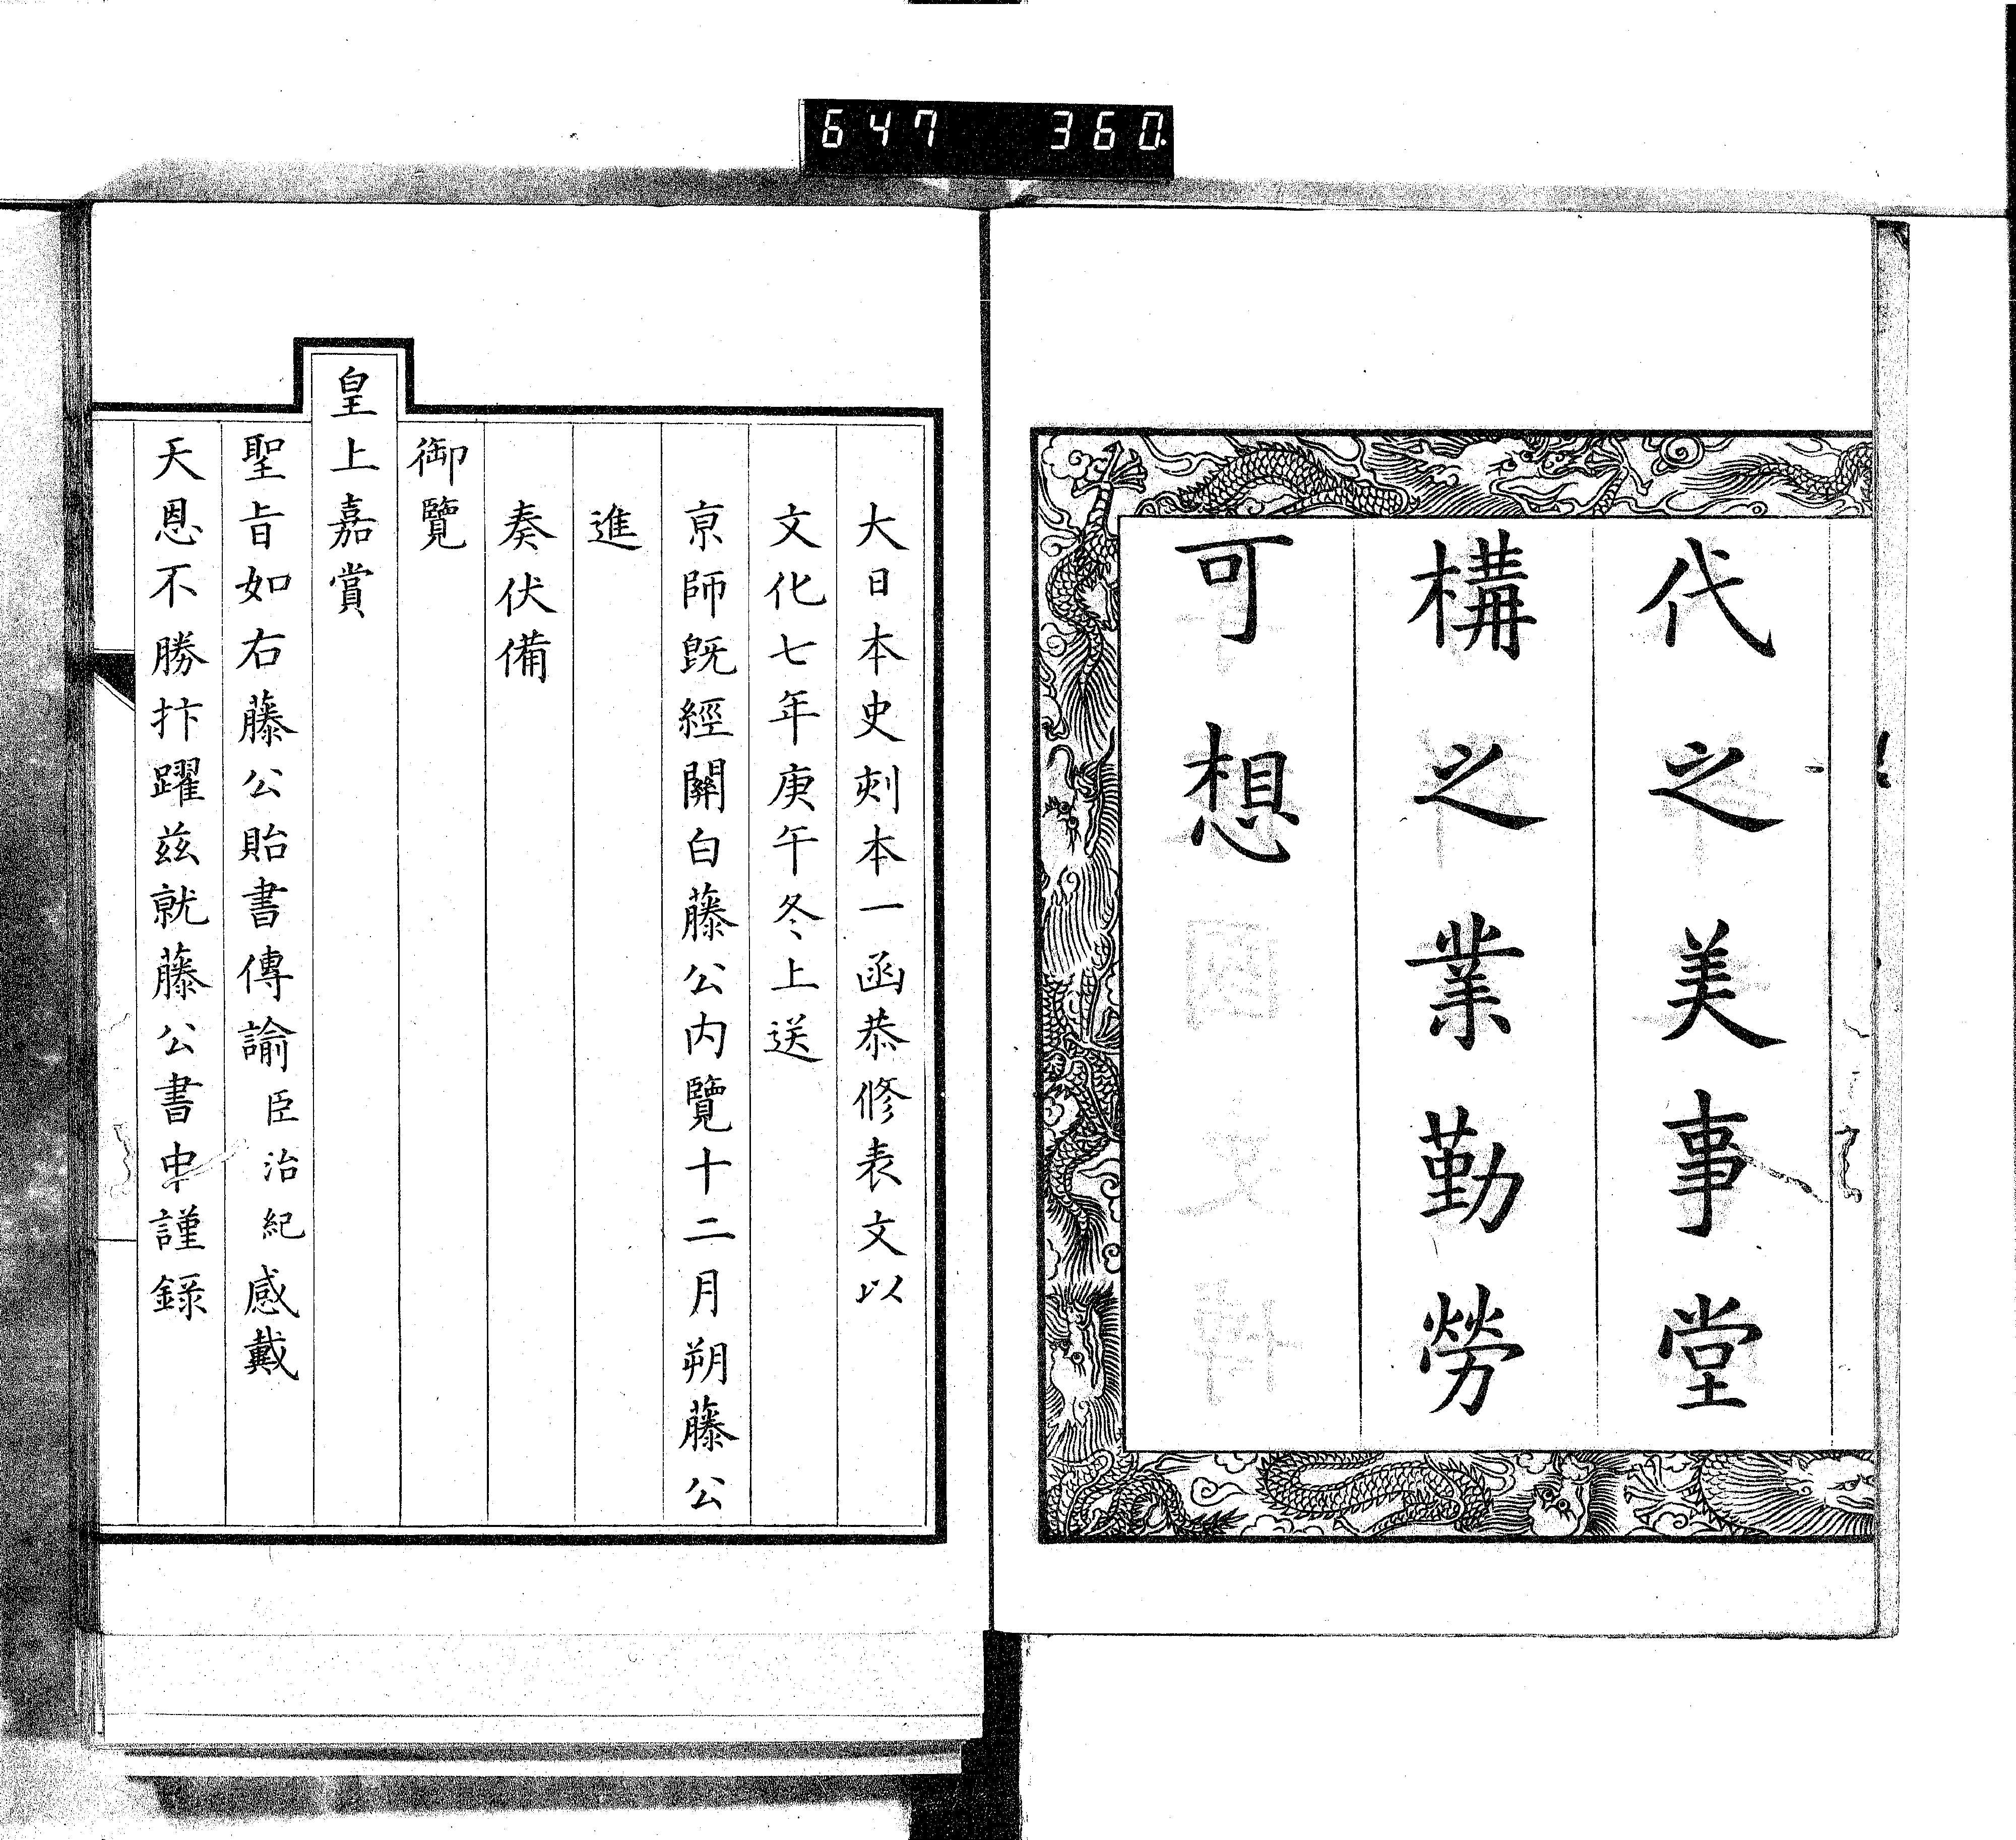 647 360.
代之美事堂
構之業勤勞
可想
大日本史刻本一函恭修表文以
文化七年庚午冬上送
京師旣經關白藤公内覽十二月朔藤公
進
奏伏備
御覽
皇上嘉賞
聖旨如右藤公貽書傳諭臣治紀感戴
天恩不勝抃躍兹就藤公書中謹錄